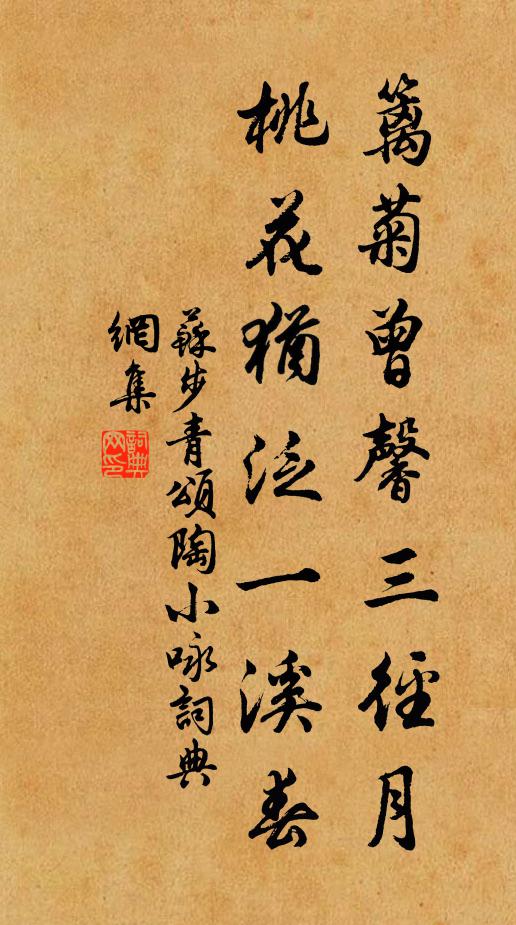 籬菊曾馨三徑月
桃花猶泛一溪春
蘇步青頌陶小咏詞典
網集
詞典網印